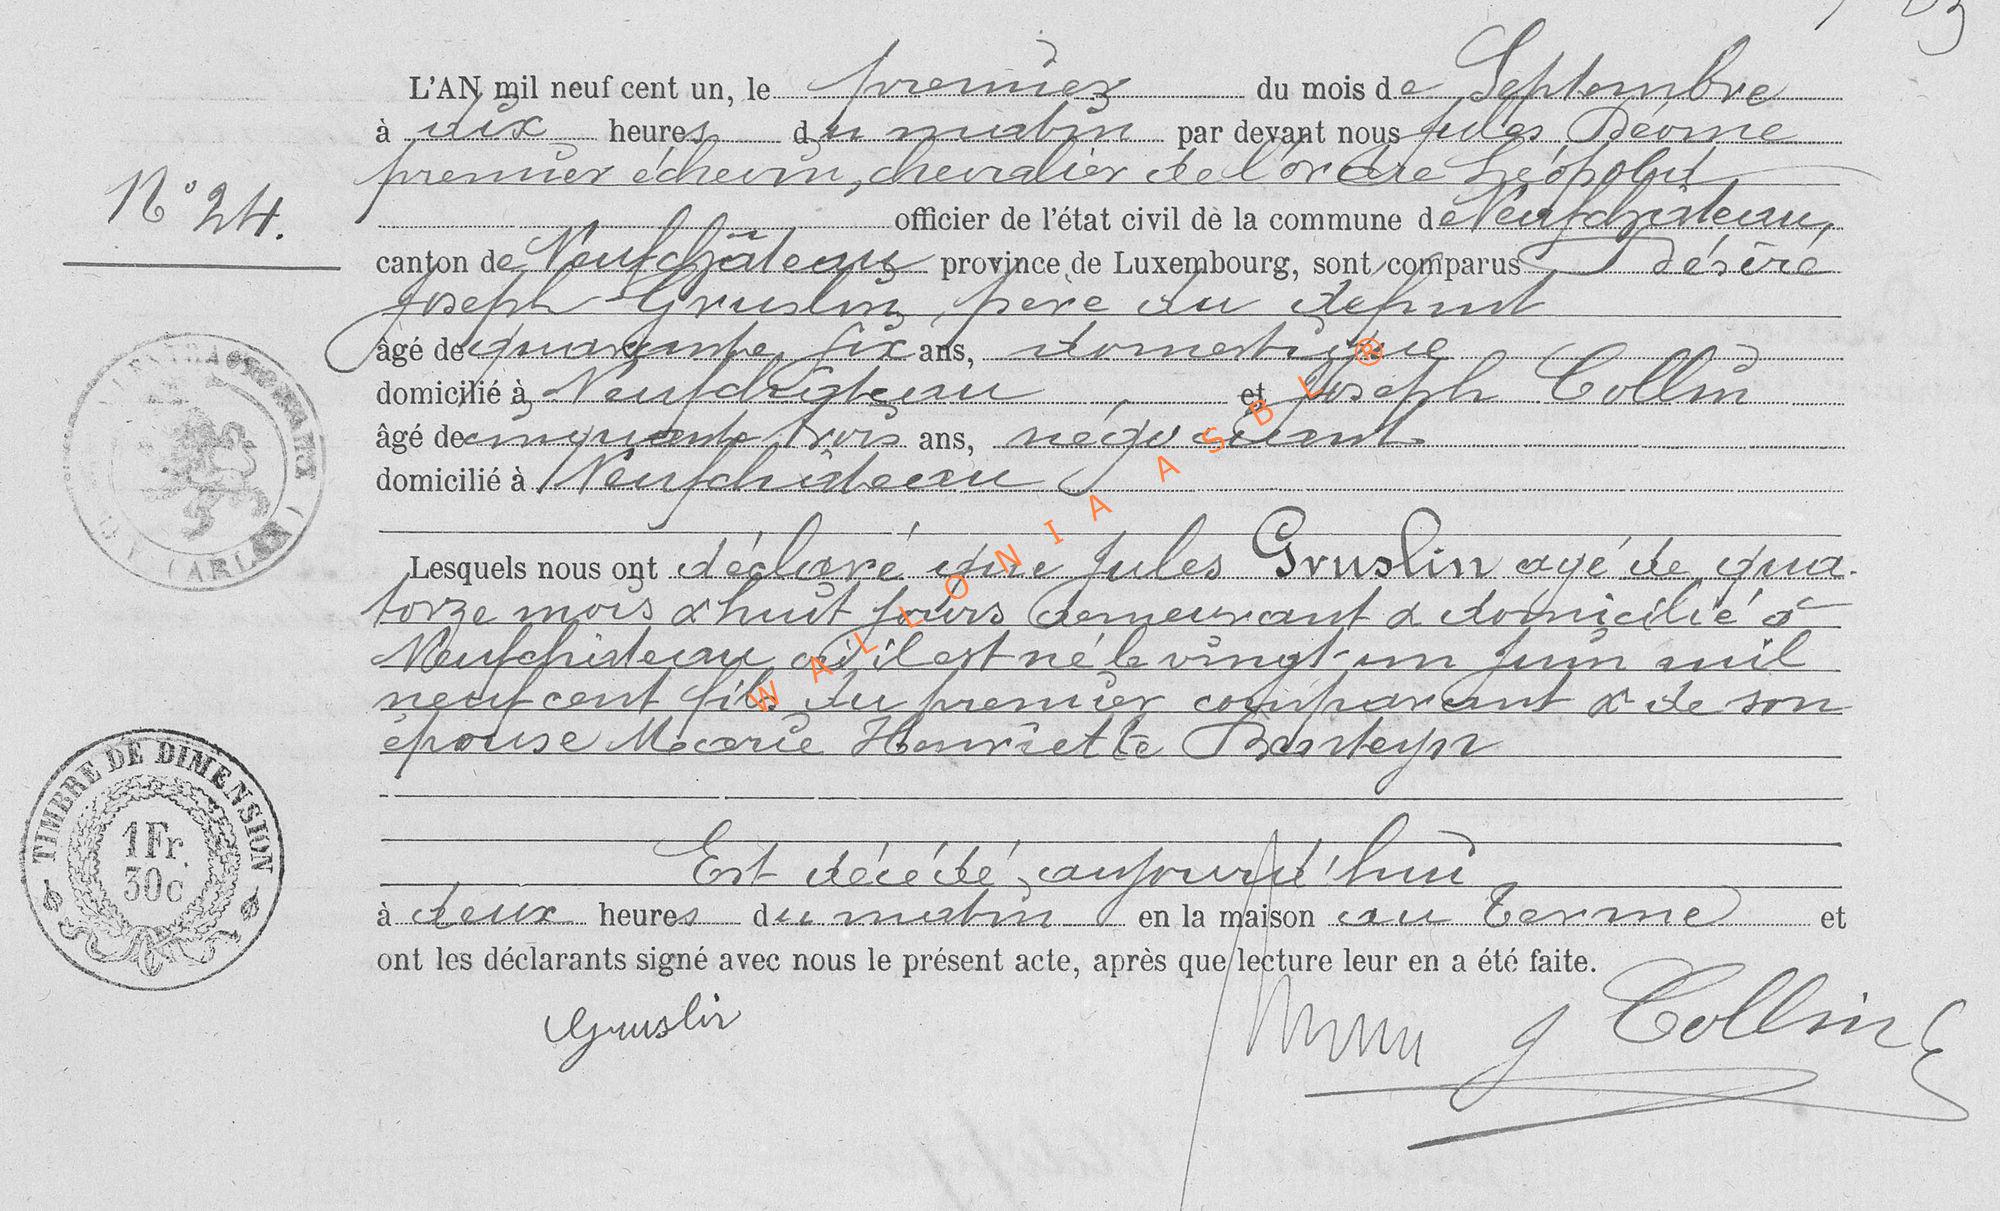 L'AN mil neuf cent un, le premier du mois de Septembre
à dix heures du matin par devant nous Jules
premier échevin, chevalier de l'ordre Léopold
N° 24.
officier de l'état civil de la commune de Neufchâteau,
canton de Neufchâteau province de Luxembourg, sont comparus Désiré
Joseph Gruslin, père du defunt
âgé de quarante six ans, domestique
domicilié à Neufchâteau et Joseph Collin
âgé de cinquante trois ans, négociant
domicilié à Neufchâteau
Lesquels nous ont déclaré que Jules Gruslin agé de qua-
torze mois & huit jours demeurant & domicilié à
Neufchâteau où il est né le vingt-un juin mil
neuf cent fils du premier comparant & de son
épouse Marie Henriette
Est décédé aujourd'hui
à deux heures du matin en la maison au Terme et
ont les déclarants signé avec nous le présent acte, après que lecture leur en a été faite.
Gruslin
J Collin
(ARLON)
TIMBRE DE DIMENSION
1 Fr.
30c
WALLONIA ASBL ®